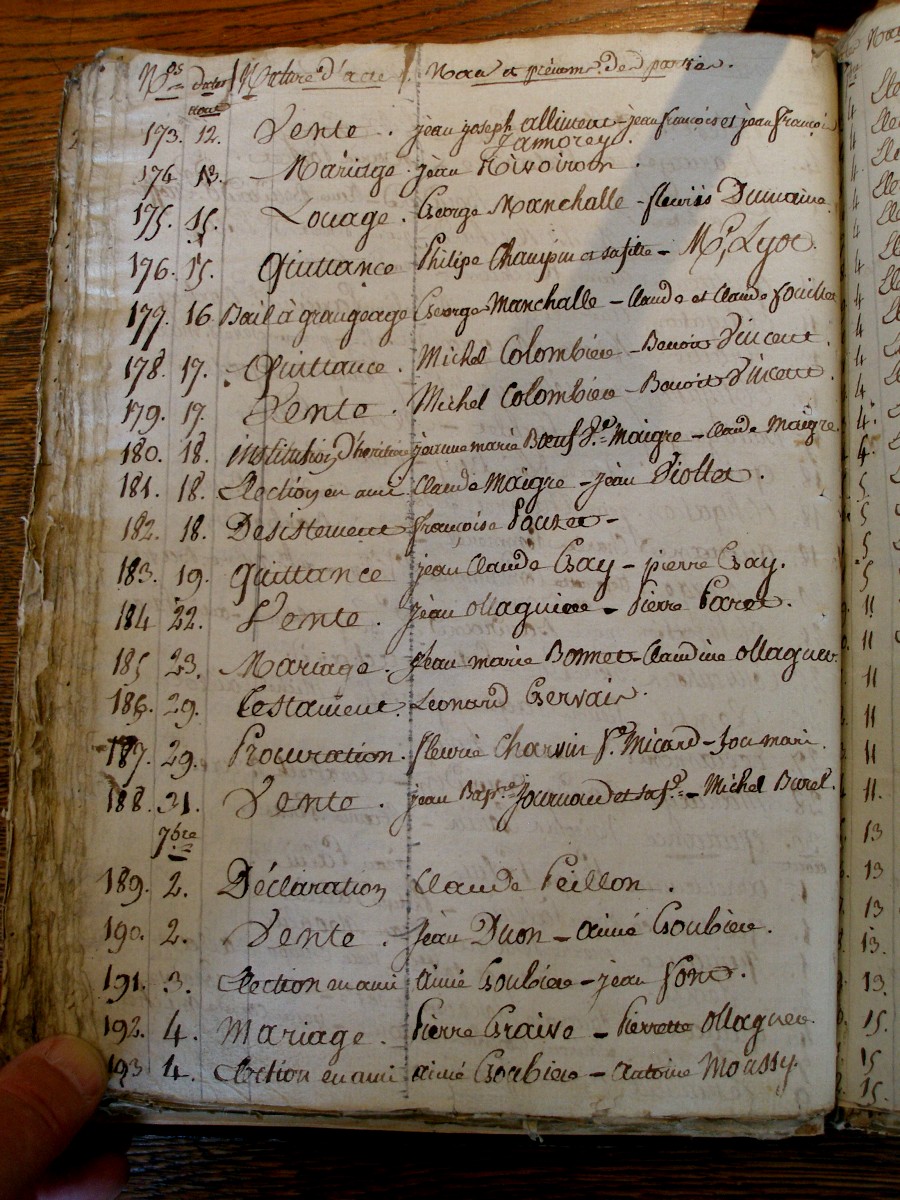 N.os dates Nature d'acte Nom et prénoms des parties.
aout
173. 12. Vente. jean joseph allimeut - jean francois et jean francois
Jamorey.
174. 13. Mariage. jean Rivoiron.
175. 15. Louage. George Manchalle - fleuris Dumaine.
176. 15. Quittance Philipe Champin et sa fille - M.r Lyot.
177. 16. Bail à grangeage George Manchalle - Claude et Claude fouillet
178. 17. Quittance. Michel Colombière - Benoit Vincent.
179. 17. Vente. Michel Colombière - Benoit Vincent.
180. 18. institution d'heritiere jeanne marie Bœuf f.e Maigre - Claude Maigre.
181. 18. Election en ami Claude Maigre - jean Viollet.
182. 18. Desistement françoise Pauzet -
183. 19. Quittance jean Claude Gay - pierre Gay.
184 22. Vente. jean ollaguiere - Pierre Paret.
185 23. Mariage. Jean marie Bonnet - Claudine ollaguer.
186. 29. Testament. Leonard Gervais.
187. 29. Procuration. fleurie Charvin f.e Micard - son mari.
188. 31. Vente. jean Bap.te Journoud et sa f.e - Michel Burel.
7bre
189. 2. Déclaration Claude Peillon.
190. 2. Vente. Jean Duon - aimé Goubiere.
191. 3. Election en ami aimé Goubiere - jean font.
192. 4. Mariage. Pierre Graive - Pierrette ollaguer.
193 4. Election en ami aimé Goubiere - Antoine Moussy.